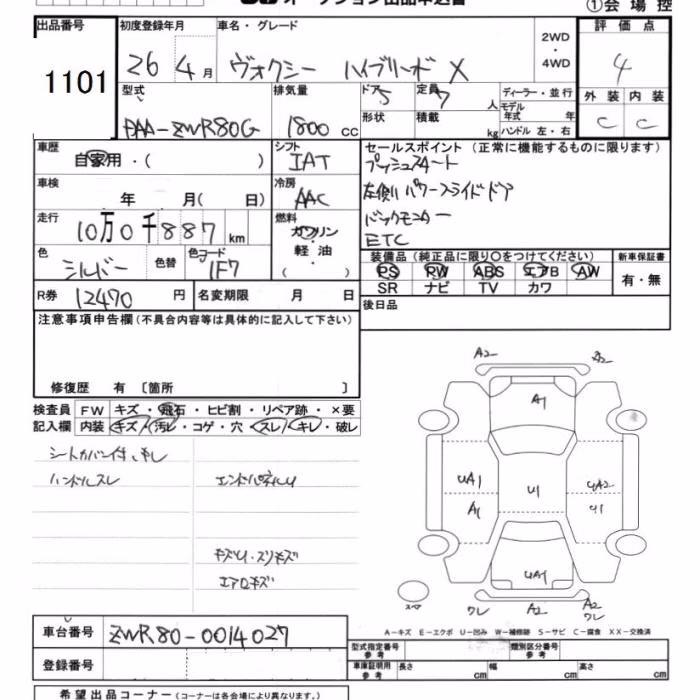 ①会場控
出品番号
1101
初度登録年月
26 4月
車名・グレード
ヴォクシー ハイブリード X
2WD
・
4WD
評価点
4
外装 内装
C C
型式
DAA-ZWR80G
排気量
1800 cc
ドア 5
形状
定員 7 人
積載 kg
ディーラー・並行
モデル年式 年
ハンドル 左・右
車歴
自家用・( )
シフト
IAT
車検
年 月( 日)
冷房
AAC
走行
10万0千887 km
燃料
ガソリン
・
軽油
( )
色
シルバー
色替
色コード
1F7
R券 12470 円
名変期限 月 日
セールスポイント (正常に機能するものに限ります)
プッシュスタート
左側パワースライドドア
バックモニター
ETC
装備品 (純正品に限り○をつけてください)
PS PW ABS エアB AW
SR ナビ TV カワ
新車保証書
有・無
後日品
注意事項申告欄(不具合内容等は具体的に記入して下さい)
修復歴 有 〔箇所 〕
検査員記入欄
FW キズ・飛石・ヒビ割・リペア跡・×要
内装 キズ・汚レ・コゲ・穴・スレ・キレ・破レ
シートカバー付
ハンドルスレ
エンドパネルU
キズU・スリキズ
エアロキズ
A2
A2
A1
UA1
A1
U1
UA2
U1
UA1
スペア
ワレ
A2
A2
ワレ
A-キズ E-エクボ U-凹み W-補修跡 S-サビ C-腐食 XX-交換済
車台番号 ZWR80-0014027
登録番号
型式指定番号
参考
類別区分番号
参考
車庫証明用
参考
長さ cm
幅 cm
高さ cm
希望出品コーナー (コーナーは各会場により異なります。)